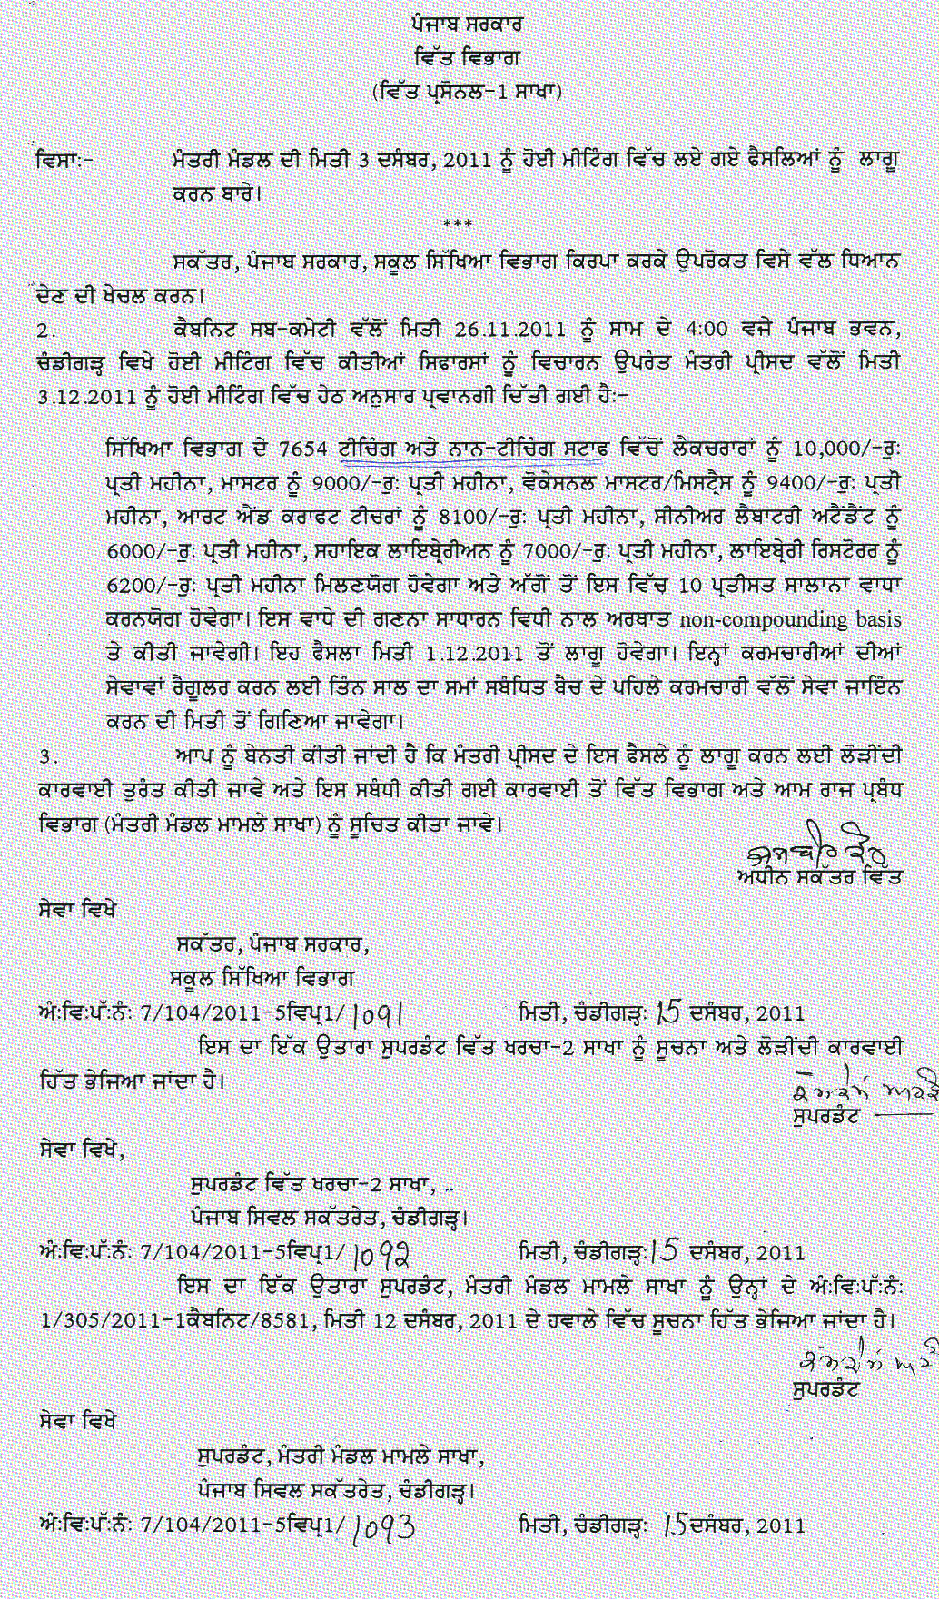 ਪੰਜਾਬ ਸਰਕਾਰ
ਵਿੱਤ ਵਿਭਾਗ
(ਵਿੱਤ ਪ੍ਰਸੋਨਲ-1 ਸਾਖਾ)
ਵਿਸਾ:- ਮੰਤਰੀ ਮੰਡਲ ਦੀ ਮਿਤੀ 3 ਦਸੰਬਰ, 2011 ਨੂੰ ਹੋਈ ਮੀਟਿੰਗ ਵਿੱਚ ਲਏ ਗਏ ਫੈਸਲਿਆਂ ਨੂੰ ਲਾਗੂ
ਕਰਨ ਬਾਰੇ।
***
ਸਕੱਤਰ, ਪੰਜਾਬ ਸਰਕਾਰ, ਸਕੂਲ ਸਿੱਖਿਆ ਵਿਭਾਗ ਕਿਰਪਾ ਕਰਕੇ ਉਪਰੋਕਤ ਵਿਸੇ ਵੱਲ ਧਿਆਨ
ਦੇਣ ਦੀ ਖੇਚਲ ਕਰਨ।
2. ਕੈਬਨਿਟ ਸਬ-ਕਮੇਟੀ ਵੱਲੋਂ ਮਿਤੀ 26.11.2011 ਨੂੰ ਸਾਮ ਦੇ 4:00 ਵਜੇ ਪੰਜਾਬ ਭਵਨ,
ਚੰਡੀਗੜ੍ਹ ਵਿਖੇ ਹੋਈ ਮੀਟਿੰਗ ਵਿੱਚ ਕੀਤੀਆਂ ਸਿਫਾਰਸਾਂ ਨੂੰ ਵਿਚਾਰਨ ਉਪਰੰਤ ਮੰਤਰੀ ਪ੍ਰੀਸਦ ਵੱਲੋਂ ਮਿਤੀ
3.12.2011 ਨੂੰ ਹੋਈ ਮੀਟਿੰਗ ਵਿੱਚ ਹੇਠ ਅਨੁਸਾਰ ਪ੍ਰਵਾਨਗੀ ਦਿੱਤੀ ਗਈ ਹੈ:-
ਸਿੱਖਿਆ ਵਿਭਾਗ ਦੇ 7654 ਟੀਚਿੰਗ ਅਤੇ ਨਾਨ-ਟੀਚਿੰਗ ਸਟਾਫ ਵਿੱਚੋਂ ਲੈਕਚਰਾਰਾਂ ਨੂੰ 10,000/-ਰੁ:
ਪ੍ਰਤੀ ਮਹੀਨਾ, ਮਾਸਟਰ ਨੂੰ 9000/-ਰੁ: ਪ੍ਰਤੀ ਮਹੀਨਾ, ਵੋਕੇਸਨਲ ਮਾਸਟਰ/ਮਿਸਟ੍ਰੈਸ ਨੂੰ 9400/-ਰੁ: ਪ੍ਰਤੀ
ਮਹੀਨਾ, ਆਰਟ ਐਂਡ ਕਰਾਫਟ ਟੀਚਰਾਂ ਨੂੰ 8100/-ਰੁ: ਪ੍ਰਤੀ ਮਹੀਨਾ, ਸੀਨੀਅਰ ਲੈਬਾਟਰੀ ਅਟੈਂਡੈਂਟ ਨੂੰ
6000/-ਰੁ: ਪ੍ਰਤੀ ਮਹੀਨਾ, ਸਹਾਇਕ ਲਾਇਬ੍ਰੇਰੀਅਨ ਨੂੰ 7000/-ਰੁ: ਪ੍ਰਤੀ ਮਹੀਨਾ, ਲਾਇਬ੍ਰੇਰੀ ਰਿਸਟੋਰਰ ਨੂੰ
6200/-ਰੁ: ਪ੍ਰਤੀ ਮਹੀਨਾ ਮਿਲਣਯੋਗ ਹੋਵੇਗਾ ਅਤੇ ਅੱਗੋਂ ਤੋਂ ਇਸ ਵਿੱਚ 10 ਪ੍ਰਤੀਸਤ ਸਾਲਾਨਾ ਵਾਧਾ
ਕਰਨਯੋਗ ਹੋਵੇਗਾ। ਇਸ ਵਾਧੇ ਦੀ ਗਣਨਾ ਸਾਧਾਰਨ ਵਿਧੀ ਨਾਲ ਅਰਥਾਤ non-compounding basis
ਤੇ ਕੀਤੀ ਜਾਵੇਗੀ। ਇਹ ਫੈਸਲਾ ਮਿਤੀ 1.12.2011 ਤੋਂ ਲਾਗੂ ਹੋਵੇਗਾ। ਇਨ੍ਹਾਂ ਕਰਮਚਾਰੀਆਂ ਦੀਆਂ
ਸੇਵਾਵਾਂ ਰੈਗੂਲਰ ਕਰਨ ਲਈ ਤਿੰਨ ਸਾਲ ਦਾ ਸਮਾਂ ਸਬੰਧਿਤ ਬੈਚ ਦੇ ਪਹਿਲੇ ਕਰਮਚਾਰੀ ਵੱਲੋਂ ਸੇਵਾ ਜਾਇੰਨ
ਕਰਨ ਦੀ ਮਿਤੀ ਤੋਂ ਗਿਣਿਆ ਜਾਵੇਗਾ।
3. ਆਪ ਨੂੰ ਬੇਨਤੀ ਕੀਤੀ ਜਾਂਦੀ ਹੈ ਕਿ ਮੰਤਰੀ ਪ੍ਰੀਸਦ ਦੇ ਇਸ ਫੈਸਲੇ ਨੂੰ ਲਾਗੂ ਕਰਨ ਲਈ ਲੋੜੀਂਦੀ
ਕਾਰਵਾਈ ਤੁਰੰਤ ਕੀਤੀ ਜਾਵੇ ਅਤੇ ਇਸ ਸਬੰਧੀ ਕੀਤੀ ਗਈ ਕਾਰਵਾਈ ਤੋਂ ਵਿੱਤ ਵਿਭਾਗ ਅਤੇ ਆਮ ਰਾਜ ਪ੍ਰਬੰਧ
ਵਿਭਾਗ (ਮੰਤਰੀ ਮੰਡਲ ਮਾਮਲੇ ਸਾਖਾ) ਨੂੰ ਸੂਚਿਤ ਕੀਤਾ ਜਾਵੇ।
ਅਧੀਨ ਸਕੱਤਰ ਵਿੱਤ
ਸੇਵਾ ਵਿਖੇ
ਸਕੱਤਰ, ਪੰਜਾਬ ਸਰਕਾਰ,
ਸਕੂਲ ਸਿੱਖਿਆ ਵਿਭਾਗ
ਅੰ:ਵਿ:ਪੱ:ਨੰ: 7/104/2011-5ਵਿਪ੍ਰ1/1091 ਮਿਤੀ, ਚੰਡੀਗੜ੍ਹ: 15 ਦਸੰਬਰ, 2011
ਇਸ ਦਾ ਇੱਕ ਉਤਾਰਾ ਸੁਪਰਡੰਟ ਵਿੱਤ ਖਰਚਾ-2 ਸਾਖਾ ਨੂੰ ਸੂਚਨਾ ਅਤੇ ਲੋੜੀਂਦੀ ਕਾਰਵਾਈ
ਹਿੱਤ ਭੇਜਿਆ ਜਾਂਦਾ ਹੈ।
ਸੁਪਰਡੰਟ
ਸੇਵਾ ਵਿਖੇ,
ਸੁਪਰਡੰਟ ਵਿੱਤ ਖਰਚਾ-2 ਸਾਖਾ,
ਪੰਜਾਬ ਸਿਵਲ ਸਕੱਤਰੇਤ, ਚੰਡੀਗੜ੍ਹ।
ਅੰ:ਵਿ:ਪੱ:ਨੰ: 7/104/2011-5ਵਿਪ੍ਰ1/1092 ਮਿਤੀ, ਚੰਡੀਗੜ੍ਹ: 15 ਦਸੰਬਰ, 2011
ਇਸ ਦਾ ਇੱਕ ਉਤਾਰਾ ਸੁਪਰਡੰਟ, ਮੰਤਰੀ ਮੰਡਲ ਮਾਮਲੇ ਸਾਖਾ ਨੂੰ ਉਨ੍ਹਾਂ ਦੇ ਅੰ:ਵਿ:ਪੱ:ਨੰ:
1/305/2011-1ਕੈਬਨਿਟ/8581, ਮਿਤੀ 12 ਦਸੰਬਰ, 2011 ਦੇ ਹਵਾਲੇ ਵਿੱਚ ਸੂਚਨਾ ਹਿੱਤ ਭੇਜਿਆ ਜਾਂਦਾ ਹੈ।
ਸੁਪਰਡੰਟ
ਸੇਵਾ ਵਿਖੇ
ਸੁਪਰਡੰਟ, ਮੰਤਰੀ ਮੰਡਲ ਮਾਮਲੇ ਸਾਖਾ,
ਪੰਜਾਬ ਸਿਵਲ ਸਕੱਤਰੇਤ, ਚੰਡੀਗੜ੍ਹ।
ਅੰ:ਵਿ:ਪੱ:ਨੰ: 7/104/2011-5ਵਿਪ੍ਰ1/1093 ਮਿਤੀ, ਚੰਡੀਗੜ੍ਹ: 15 ਦਸੰਬਰ, 2011